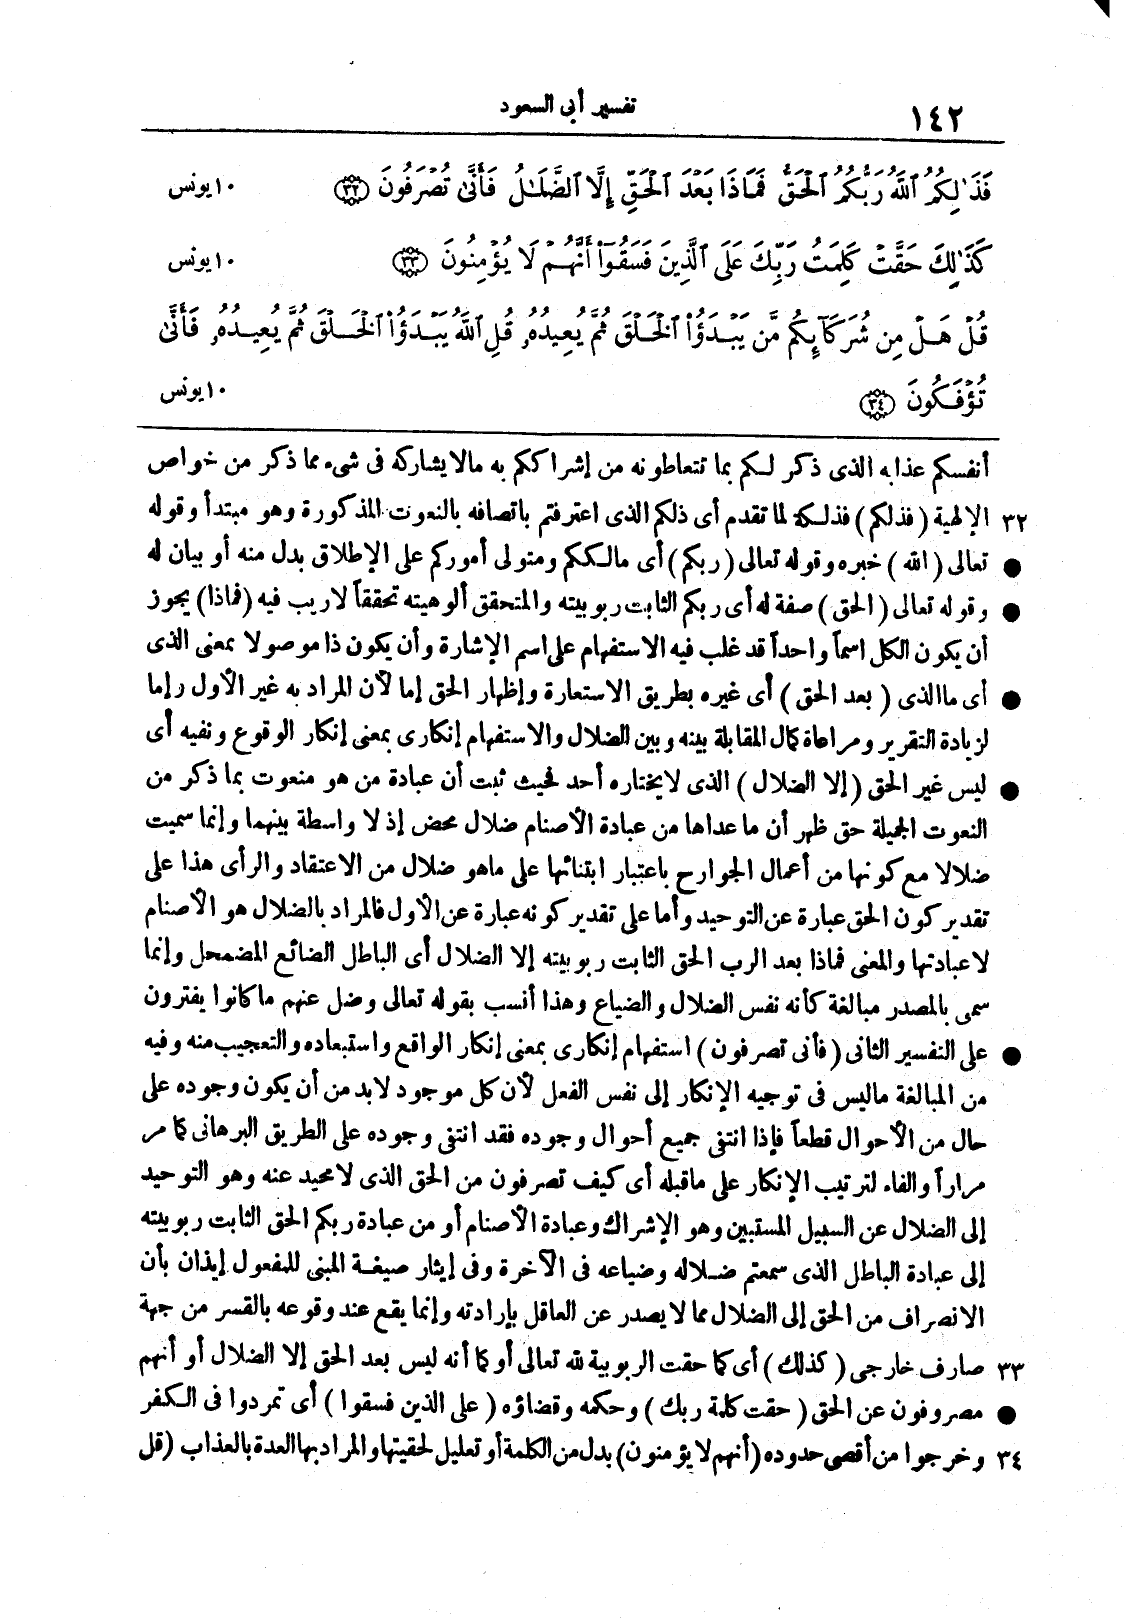 ١٤٢ تفسير أبى السعود
فَذَٰلِكُمُ ٱللَّهُ رَبُّكُمُ ٱلْحَقُّ فَمَاذَا بَعْدَ ٱلْحَقِّ إِلَّا ٱلضَّلَـٰلُ فَأَنَّىٰ تُصْرَفُونَ ﴿٣٢﴾ ١٠ يونس
كَذَٰلِكَ حَقَّتْ كَلِمَتُ رَبِّكَ عَلَى ٱلَّذِينَ فَسَقُوٓا۟ أَنَّهُمْ لَا يُؤْمِنُونَ ﴿٣٣﴾ ١٠ يونس
قُلْ هَلْ مِن شُرَكَآئِكُم مَّن يَبْدَؤُا۟ ٱلْخَلْقَ ثُمَّ يُعِيدُهُۥ قُلِ ٱللَّهُ يَبْدَؤُا۟ ٱلْخَلْقَ ثُمَّ يُعِيدُهُۥ فَأَنَّىٰ
تُؤْفَكُونَ ﴿٣٤﴾ ١٠ يونس
أنفسكم عذابه الذى ذكر لكم بما تتعاطونه من إشراككم به مالا يشاركه فى شىء مما ذكر من خواص
٣٢ الإلهية (فذلكم) فذلكة لما تقدم أى ذلكم الذى اعترفتم باتصافه بالنعوت المذكورة وهو مبتدأ وقوله
● تعالى (الله) خبره وقوله تعالى (ربكم) أى مالككم ومتولى أموركم على الإطلاق بدل منه أو بيان له
● وقوله تعالى (الحق) صفة له أى ربكم الثابت ربوبيته والمتحقق ألوهيته تحققاً لاريب فيه (فماذا) يجوز
أن يكون الكل اسماً واحداً قد غلب فيه الاستفهام على اسم الإشارة وأن يكون ذا موصولا بمعنى الذى
● أى ماالذى (بعد الحق) أى غيره بطريق الاستعارة وإظهار الحق إما لأن المراد به غير الأول وإما
لزيادة التقرير ومراعاة كمال المقابلة بينه وبين الضلال والاستفهام إنكارى بمعنى إنكار الوقوع ونفيه أى
● ليس غير الحق (إلا الضلال) الذى لا يختاره أحد فحيث ثبت أن عبادة من هو منعوت بما ذكر من
النعوت الجميلة حق ظهر أن ما عداها من عبادة الأصنام ضلال محض إذ لا واسطة بينهما وإنما سميت
ضلالا مع كونها من أعمال الجوارح باعتبار ابتنائها على ماهو ضلال من الاعتقاد والرأى هذا على
تقدير كون الحق عبارة عن التوحيد وأما على تقدير كونه عبارة عن الأول فالمراد بالضلال هو الأصنام
لا عبادتها والمعنى فماذا بعد الرب الحق الثابت ربوبيته إلا الضلال أى الباطل الضائع المضمحل وإنما
سمى بالمصدر مبالغة كأنه نفس الضلال والضياع وهذا أنسب بقوله تعالى وضل عنهم ما كانوا يفترون
● على التفسير الثانى (فأنى تصرفون) استفهام إنكارى بمعنى إنكار الواقع واستبعاده والتعجيب منه وفيه
من المبالغة ماليس فى توجيه الإنكار إلى نفس الفعل لأن كل موجود لابد من أن يكون وجوده على
حال من الأحوال قطعاً فإذا انتفى جميع أحوال وجوده فقد انتفى وجوده على الطريق البرهانى كما مر
مراراً والفاء لترتيب الإنكار على ماقبله أى كيف تصرفون من الحق الذى لا محيد عنه وهو التوحيد
إلى الضلال عن السبيل المستبين وهو الإشراك وعبادة الأصنام أو من عبادة ربكم الحق الثابت ربوبيته
إلى عبادة الباطل الذى سمعتم ضلاله وضياعه فى الآخرة وفى إيثار صيغة المبنى للمفعول إيذان بأن
الانصراف من الحق إلى الضلال مما لا يصدر عن العاقل بإرادته وإنما يقع عند وقوعه بالقسر من جهة
٣٣ صارف خارجى (كذلك) أى كما حقت الربوبية لله تعالى أو كما أنه ليس بعد الحق إلا الضلال أو أنهم
● مصروفون عن الحق (حقت كلمة ربك) وحكمه وقضاؤه (على الذين فسقوا) أى تمردوا فى الكفر
٣٤ وخرجوا من أقصى حدوده (أنهم لا يؤمنون) بدل من الكلمة أو تعليل لحقيتها والمراد بها العدة بالعذاب (قل